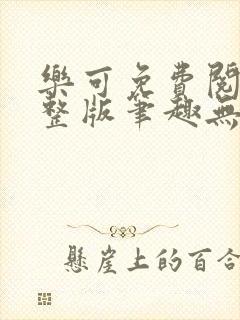 樂可免費閱
整版筆趣無
懸崖上的百合